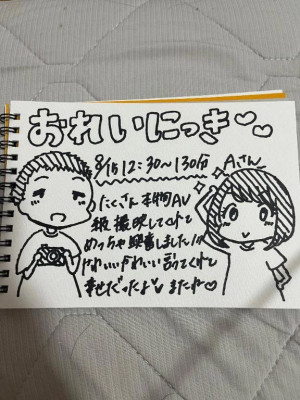 おれいにっき♡♡
8/15 12:30~130分
Aさん
たくさん本物AV
級撮影してくれて
めっちゃ興奮しました!!!
かわいいかわいい言ってくれて
幸せだったよ♡またね♡